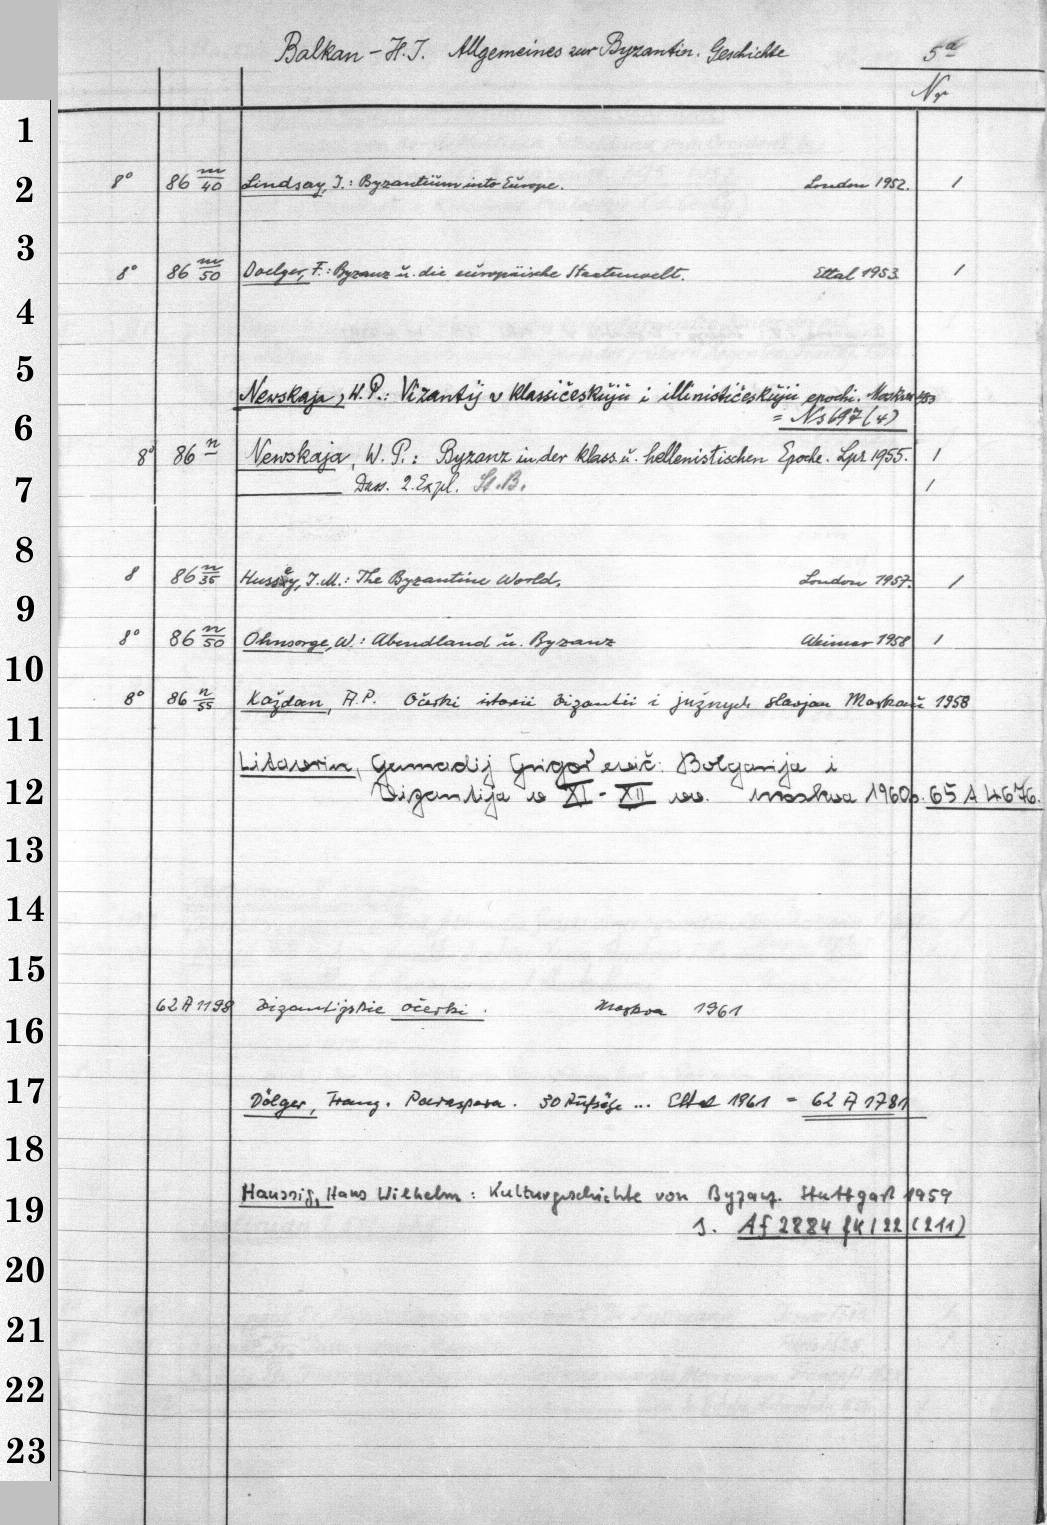 Balkan - H. I. Allgemeines zur Byzantin. Geschichte 5a
Nr
1
2
8° 86 m/40 Lindsay, J.: Byzantium into Europe. London 1952. 1
3
8° 86 m/50 Doelger, F.: Byzanz u. die europäische Staatenwelt. Ettal 1953 1
4
5
Newskaja, W. P.: Vizantij v klassičeskuju i illinističeskuju epochi. Moskau 1953
6
= Ns 697 (4)
8° 86 n Newskaja, W. P.: Byzanz in der klass. u. hellenistischen Epoche. Lpz. 1955. 1
7
Dass. 2. Expl. St. B. 1
8
8 86 n/35 Hussey, J. M.: The Byzantine World. London 1957. 1
9
8° 86 n/50 Ohnsorge, W.: Abendland u. Byzanz Weimar 1958 1
10
8° 86 n/55 Každan, A. P. Očerki istorii Vizantii i južnych slavjan Moskau 1958
11
Litavrin, Gennadij Grigor'evič: Bolgarija i
12
Vizantija v XI - XII vv. Moskva 1960. 65 A 4676.
13
14
15
62 A 1198 Vizantijskie očerki. Moskva 1961
16
17
Dölger, Franz. Paraspora. 30 Aufsätze ... Ettal 1961 = 62 A 1781
18
19
Haussig, Hans Wilhelm: Kulturgeschichte von Byzanz. Stuttgart 1959
s. Af 2884 fk/22 (211)
20
21
22
23